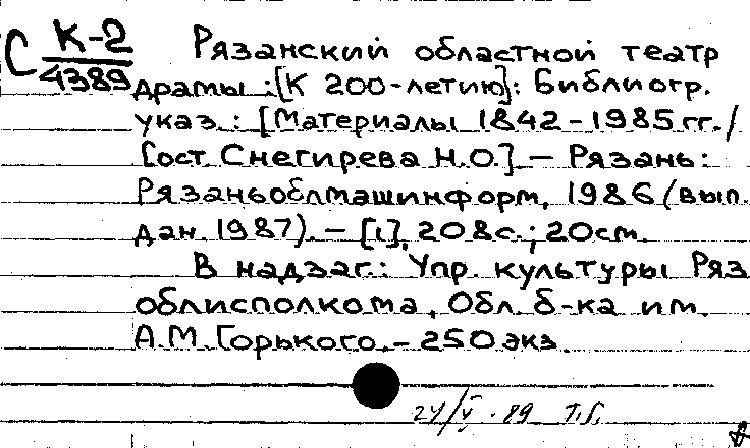 С К-2
4389
Рязанский областной театр
драмы : [К 200-летию]: Библиогр.
указ. : [Материалы 1842-1985 гг. /
Сост. Снегирева Н.О.] – Рязань:
Рязаньоблмашинформ, 1986 (вып.
дан. 1987). – [1], 208 с. ; 20 см.
В надзаг.: Упр. культуры Ряз
облисполкома, Обл. б-ка им.
А.М. Горького. – 250 экз.
24/V-89